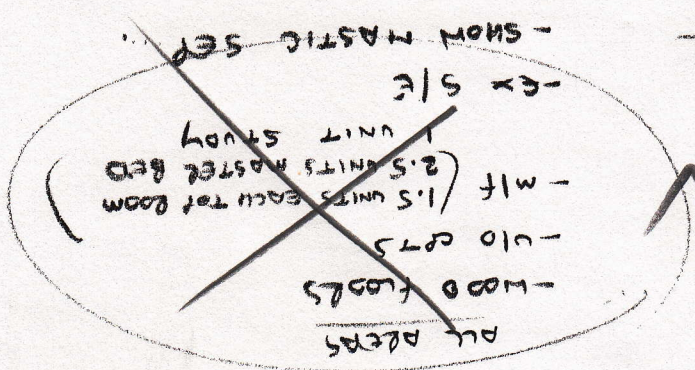 ALL AREAS
- WOOD FLOORS
- U/O CPTS
- M/F (1.5 UNITS EACH TOP ROOM
2.5 UNITS MASTER BED
1 UNIT STUDY)
- EX S/E
- SHOW MASTIC SEP